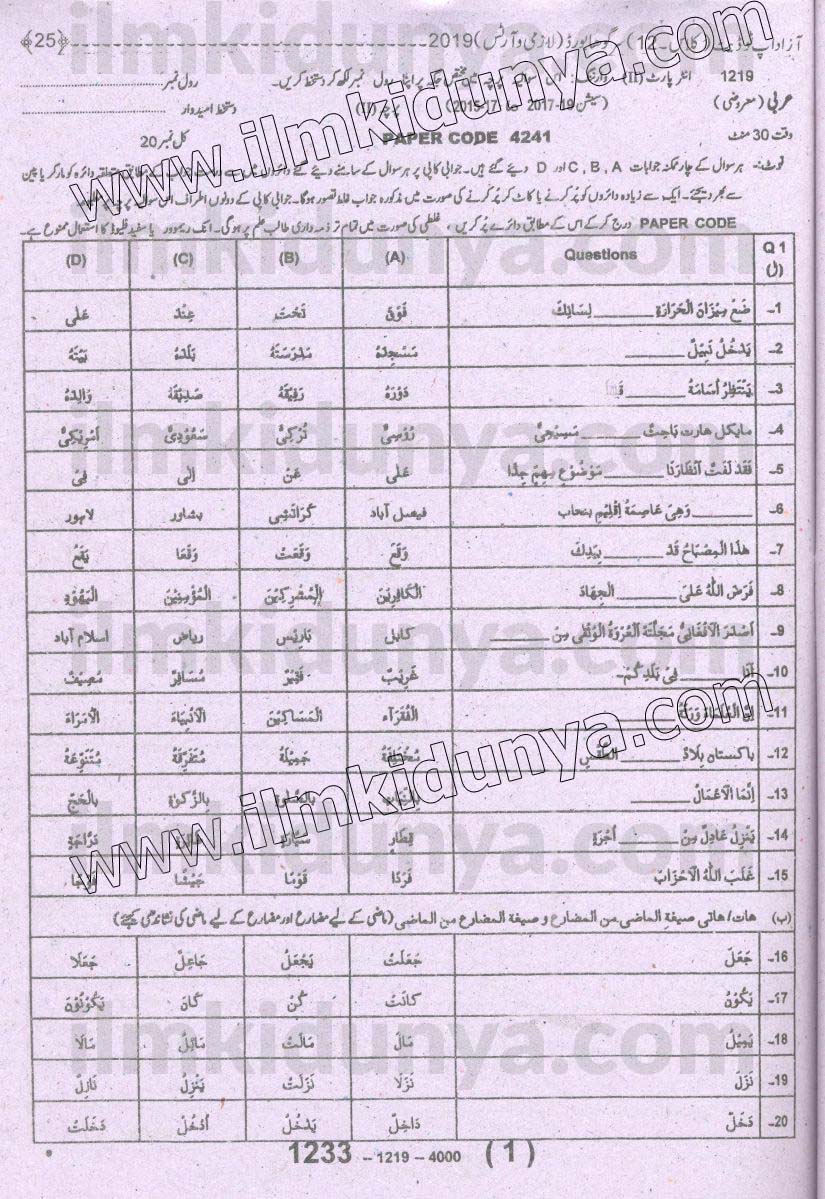 آزاد اپ ٹو ڈیٹ (کلاس ۔12) سرگودھا بورڈ (لازمی و آرٹس) 2019 ﴿25﴾
1219 انٹر پارٹ (II) اس سوالیہ پرچہ میں مختص جگہ پر اپنا رول نمبر لکھ کر دستخط کریں۔ رول نمبر
عربی (معروضی) (سیشن 19-2017 17-2015) پرچہ (II) دستخط امیدوار
وقت 30 منٹ PAPER CODE 4241 کل نمبر 20
نوٹ:۔ ہر سوال کے چار ممکنہ جوابات C , B , A اور D دیئے گئے ہیں۔ جوابی کاپی پر ہر سوال کے سامنے دیئے گئے دائروں میں سے درست جواب کے مطابق متعلقہ دائرہ کو مارکر یا پین
سے بھر دیجئے۔ ایک سے زیادہ دائروں کو پُر کرنے یا کاٹ کر پُر کرنے کی صورت میں مذکورہ جواب غلط تصور ہوگا۔ جوابی کاپی کے دونوں اطراف اس سوالیہ پرچہ
PAPER CODE درج کر کے اس کے مطابق دائرے پُر کریں ، غلطی کی صورت میں تمام تر ذمہ داری طالب علم پر ہوگی۔ انک ریموور یا سفید فلیوڈ کا استعمال ممنوع ہے۔
Q 1 (ل) Questions (A) (B) (C) (D)
1۔ ضَعْ مِيزَانَ الْحَرَارَةِ ______ لِسَانِكَ فَوْقَ تَحْتَ عِنْدَ عَلٰى
2۔ يَدْخُلُ نَبِيْلٌ ______ مَسْجِدَهٗ مَدْرَسَتَهٗ بَلَدَهٗ بَيْتَهٗ
3۔ يَنْتَظِرُ أُسَامَةُ ______ دَوْرَهٗ رَفِيْقَهٗ صَدِيْقَهٗ وَالِدَهٗ
4۔ مايكل هارت بَاحِثٌ ______ مَسِيْحِيٌّ رُوْسِيٌّ تُرْكِيٌّ سَعُوْدِيٌّ اَمْرِيْكِيٌّ
5۔ فَقَدْ لَفَتَ اَنْظَارَنَا ______ مَوْضُوْعٍ مُهِمٍّ جِدًّا عَلٰى عَنْ اِلٰى فِيْ
6۔ ______ وَهِيَ عَاصِمَةُ اِقْلِيْمِ بنجاب فيصل آباد كراتشي بشاور لاهور
7۔ هٰذَا الْمِصْبَاحُ قَدْ ______ بِيَدِكَ وَقَعَ وَقَعَتْ وَقَعَا يَقَعُ
8۔ فَرَضَ اللّٰهُ عَلَى ______ الْجِهَادَ الْكَافِرِيْنَ الْمُشْرِكِيْنَ الْمُؤْمِنِيْنَ الْيَهُوْدِ
9۔ اَصْدَرَ الْاَفْغَانِيُّ مَجَلَّةَ الْعُرْوَةُ الْوُثْقٰى مِنْ ______ كابل بَارِيْس رياض اسلام آباد
10۔ اَنَا ______ فِيْ بَلَدِكُمْ۔ غَرِيْبٌ فَقِيْرٌ مُسَافِرٌ مُصِيْبٌ
11۔ اِنَّ الْعُلَمَاءَ وَرَثَةُ ______ الْفُقَرَآءِ الْمَسَاكِيْنِ الْاَنْبِيَاءِ الْاُمَرَاءِ
12۔ باكستان بِلَادٌ ______ الطَّقْسِ مُخْتَلِفَةُ جَمِيْلَةُ مُتَفَرِّقَةُ مُتَنَوِّعَةُ
13۔ اِنَّمَا الْاَعْمَالُ ______ بِالنِّيَّاتِ بِالصَّلٰوةِ بِالزَّكٰوةِ بِالْحَجِّ
14۔ يَنْزِلُ عَادِلٌ مِنْ ______ اُجْرَةٍ قِطَارِ سَيَّارَةِ دَرَّاجَةِ
15۔ غَلَبَ اللّٰهُ الْاَحْزَابَ فَرْدًا قَوْمًا جَيْشًا
(ب) هات/هاتي صيغة الماضي من المضارع و صيغة المضارع من الماضي (ماضی کے لیے مضارع اور مضارع کے لیے ماضی کی نشاندہی کیجئے)
16۔ جَعَلَ جَعَلَتْ يَجْعَلُ جَاعِلٌ جَعَلَا
17۔ يَكُوْنُ كَانَتْ كُنْ كَانَ يَكُوْنُوْنَ
18۔ يَمِيْلُ مَالَ مَالَتْ مَائِلٌ مَالَا
19۔ نَزَلَ نَزَلَا نَزَلَتْ يَنْزِلُ نَازِلٌ
20۔ دَخَلَ دَاخِلٌ يَدْخُلُ اُدْخُلْ دَخَلَتْ
1233 -- 1219 -- 4000 ( 1 )
www.ilmkidunya.com
ilmkidunya.com
ilmkidunya.com
ilmkidunya.com
www.ilmkidunya.com
ilmkidunya.com
ilmkidunya.com